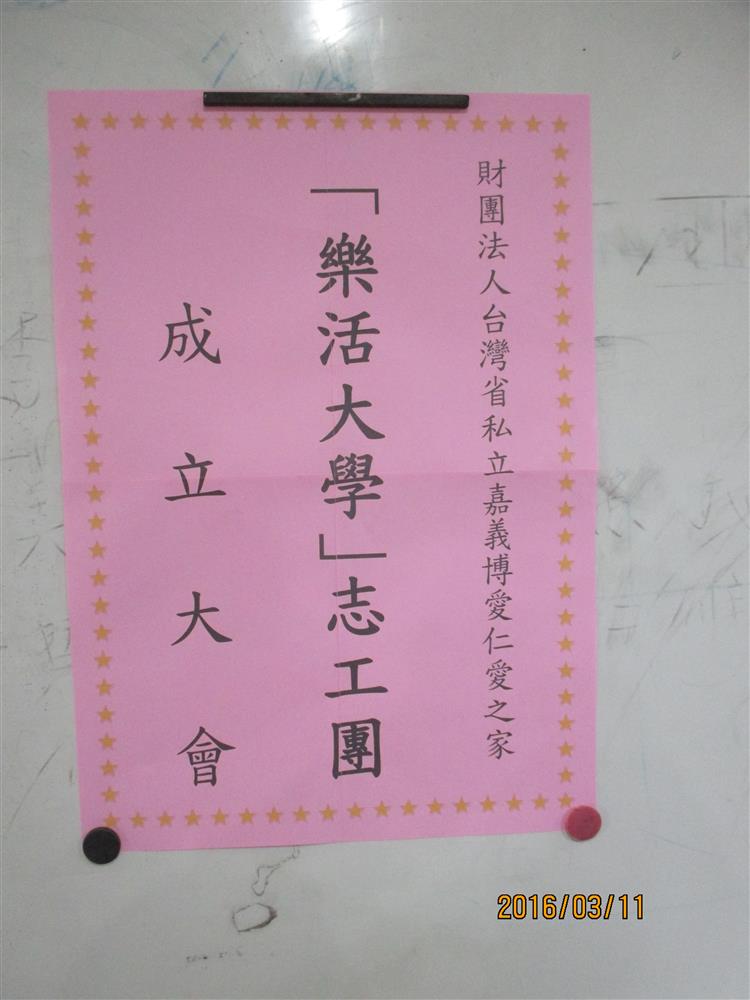 財團法人台灣省私立嘉義博愛仁愛之家
「樂活大學」志工團
成立大會
2016/03/11